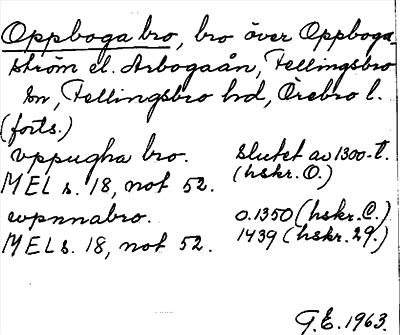 Oppboga bro, bro över Oppboga-
ström el. Arbogaån, Fellingsbro
sn, Fellingsbro hd, Örebro l.
(forts.)
vppugha bro. slutet av 1300-t.
MEL s. 18, not 52. (hskr. O.)
wpnnabro. o. 1350 (hskr. C.)
MEL s. 18, not 52. 1439 (hskr. 29.)
G.E. 1963.